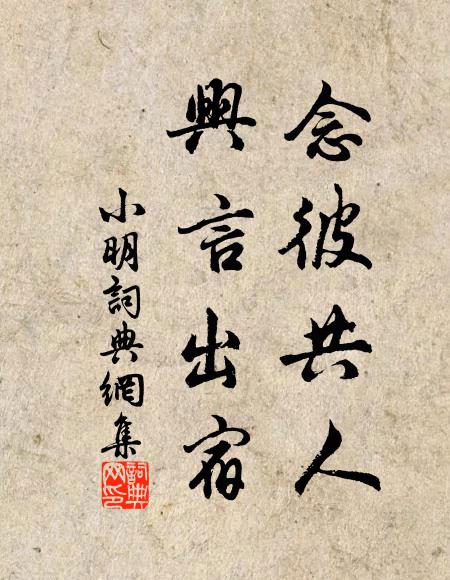 念彼共人
興言出宿
小明詞典網集
詞典
网印